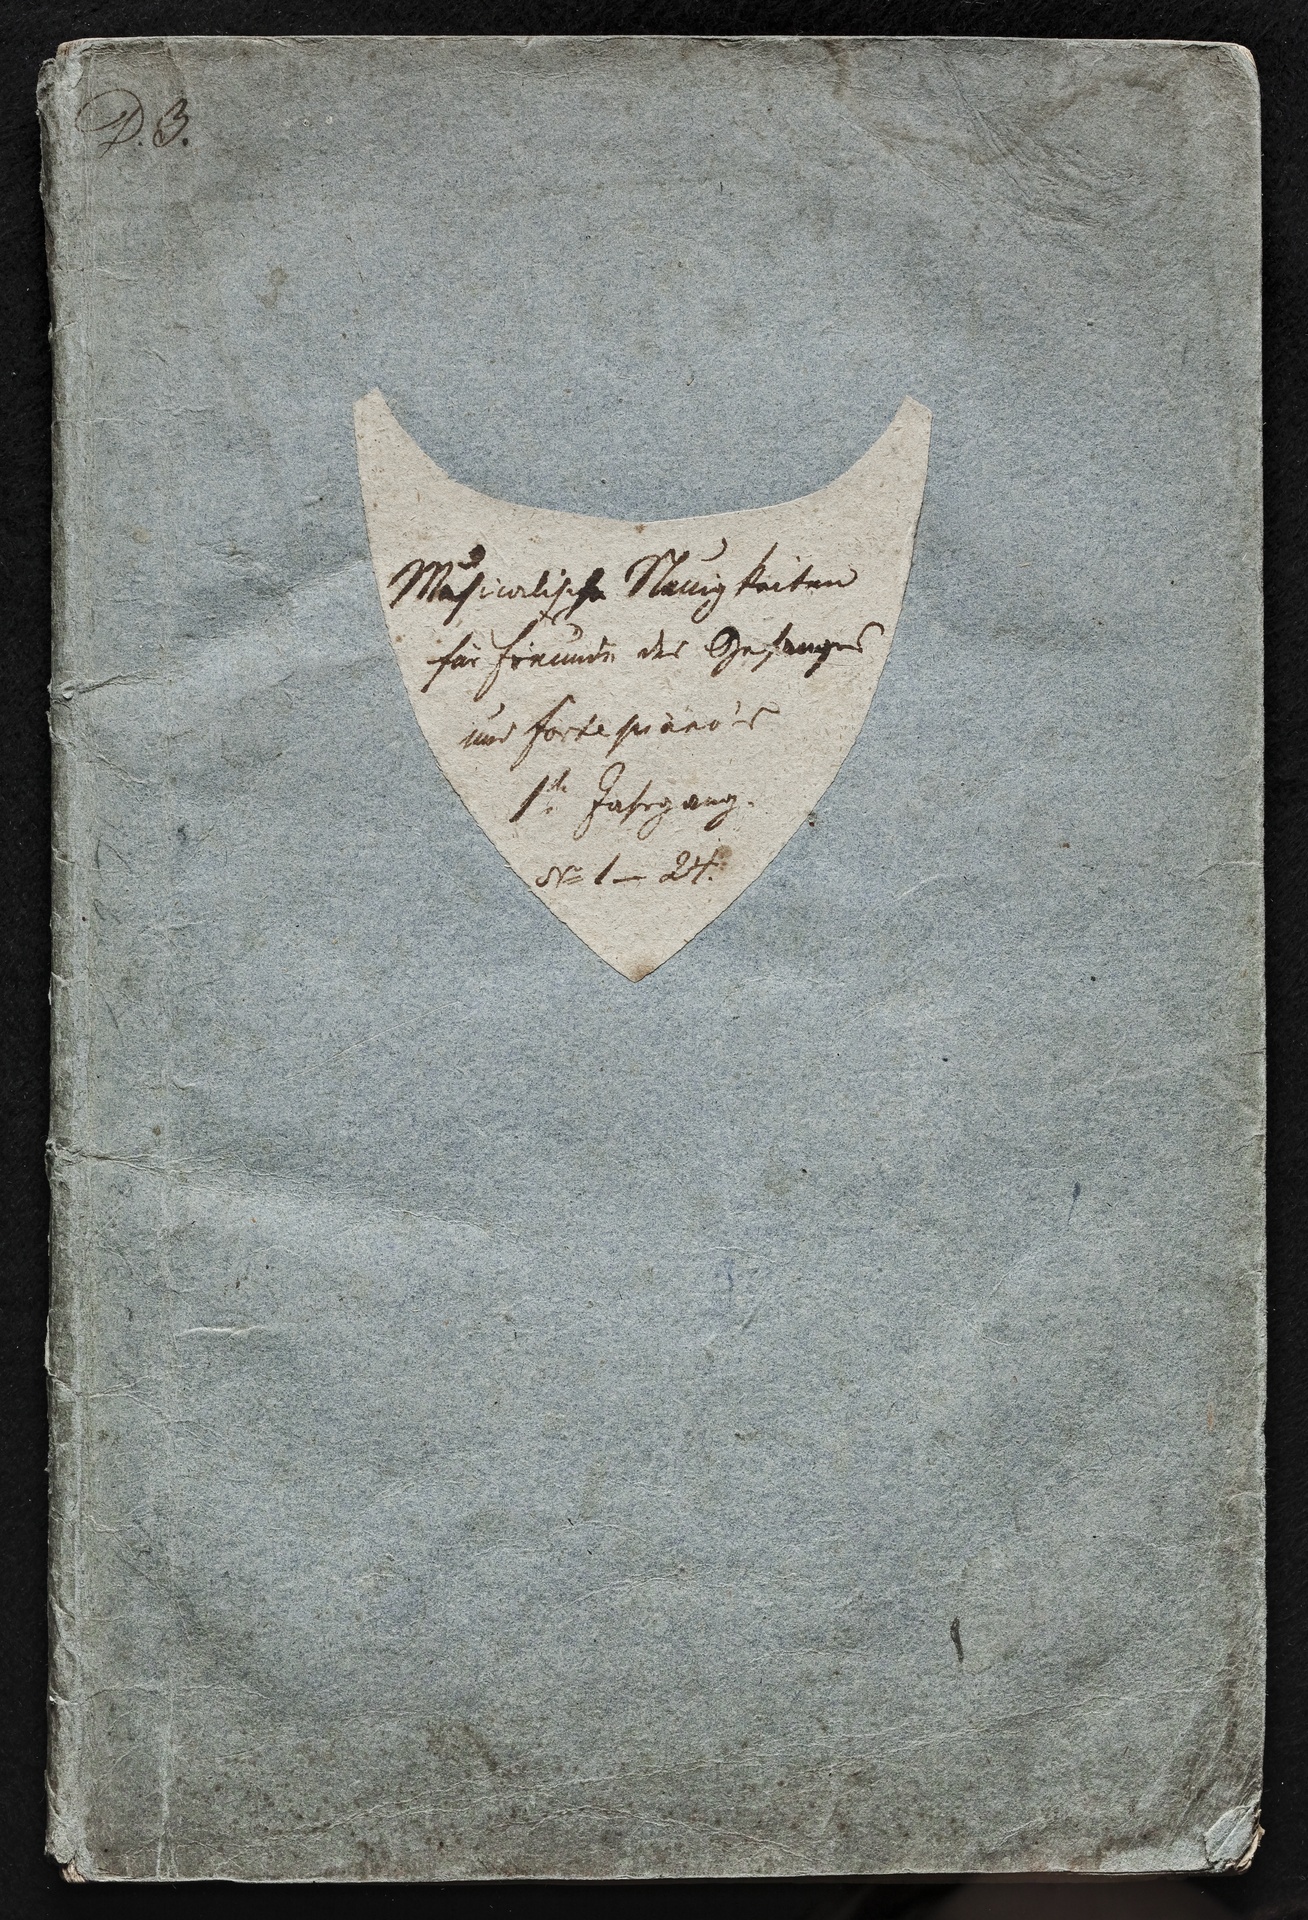 D. B.
Musicalische Neuigkeiten
für Freunde des Gesanges
und Fortepiano's
1ter Jahrgang.
No 1 – 24.